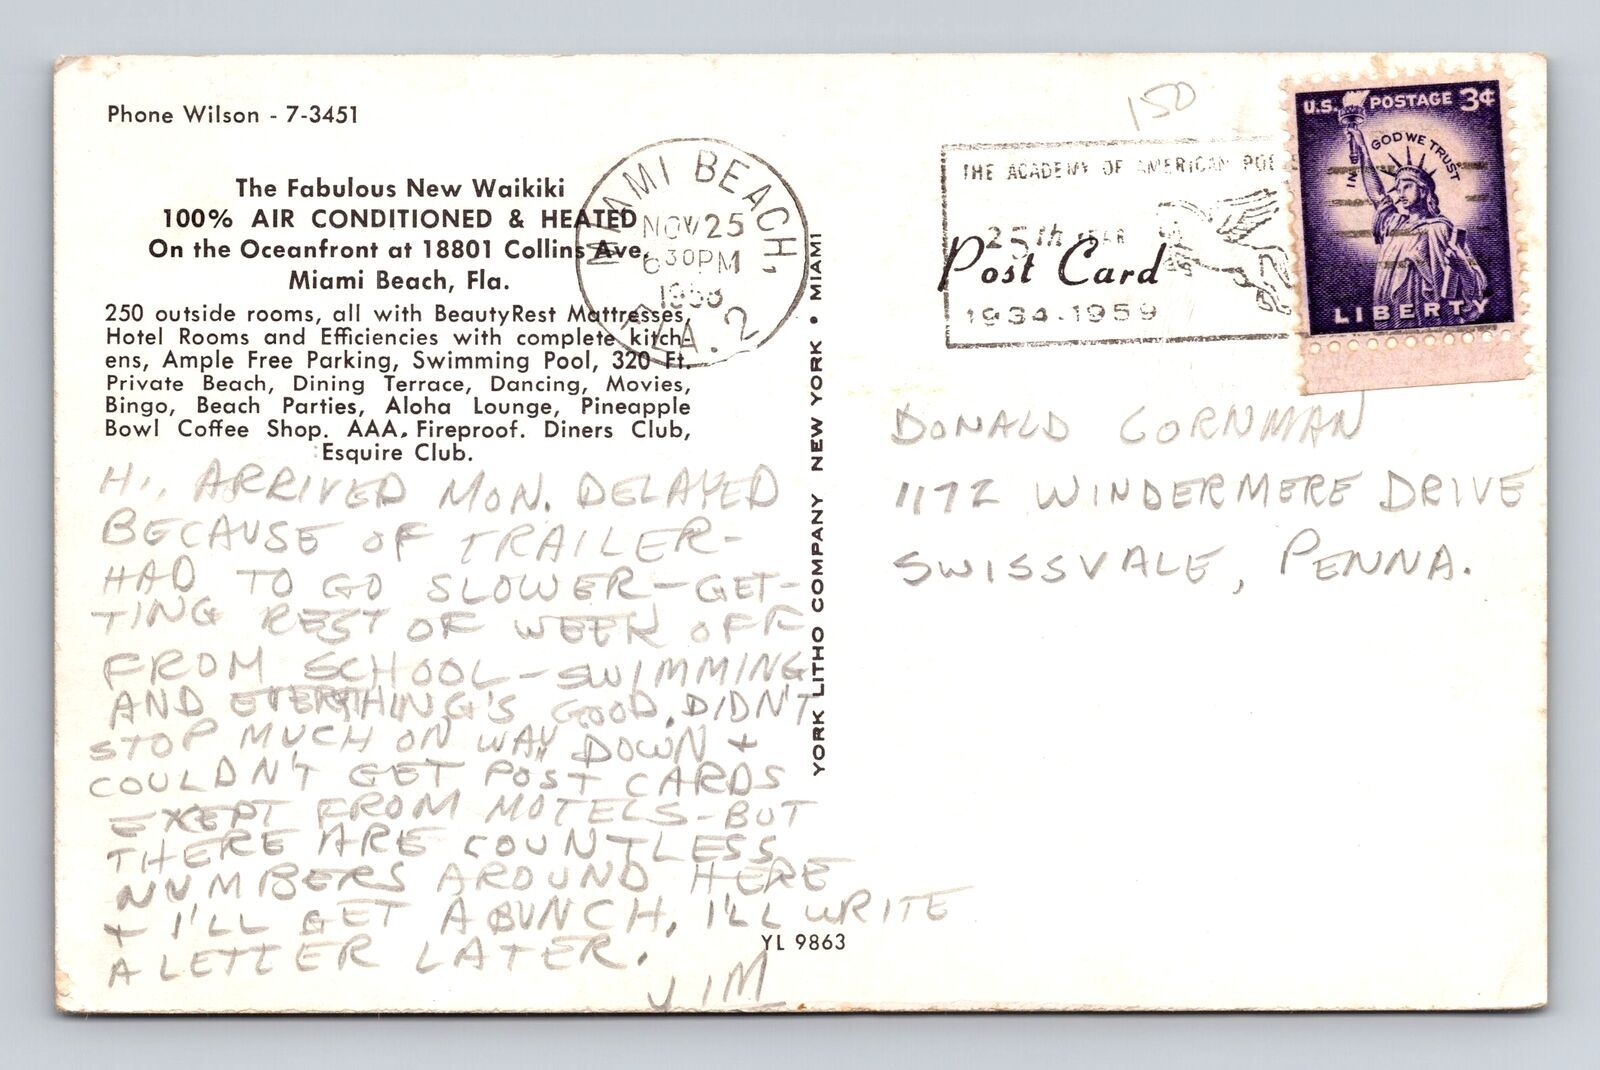 Phone Wilson - 7-3451
The Fabulous New Waikiki
100% AIR CONDITIONED & HEATED
On the Oceanfront at 18801 Collins Ave.
Miami Beach, Fla.
250 outside rooms, all with BeautyRest Mattresses,
Hotel Rooms and Efficiencies with complete kitch-
ens, Ample Free Parking, Swimming Pool, 320 Ft.
Private Beach, Dining Terrace, Dancing, Movies,
Bingo, Beach Parties, Aloha Lounge, Pineapple
Bowl Coffee Shop. AAA. Fireproof. Diners Club,
Esquire Club.
HI, ARRIVED MON. DELAYED
BECAUSE OF TRAILER-
HAD TO GO SLOWER-GET-
TING REST OF WEEK OFF
FROM SCHOOL-SWIMMING
AND EVERYTHING'S GOOD. DIDN'T
STOP MUCH ON WAY DOWN +
COULDN'T GET POST CARDS
EXEPT FROM MOTELS-BUT
THERE ARE COUNTLESS
NUMBERS AROUND HERE
+ I'LL GET A BUNCH. I'LL WRITE
A LETTER LATER.
JIM
MIAMI BEACH,
NOV 25
6 30PM
1958
FLA. 2
YORK LITHO COMPANY NEW YORK • MIAMI
YL 9863
150
THE ACADEMY OF AMERICAN
25th YEAR
Post Card
1934-1959
U.S. POSTAGE 3¢
IN GOD WE TRUST
LIBERTY
DONALD CORNMAN
1172 WINDERMERE DRIVE
SWISSVALE, PENNA.